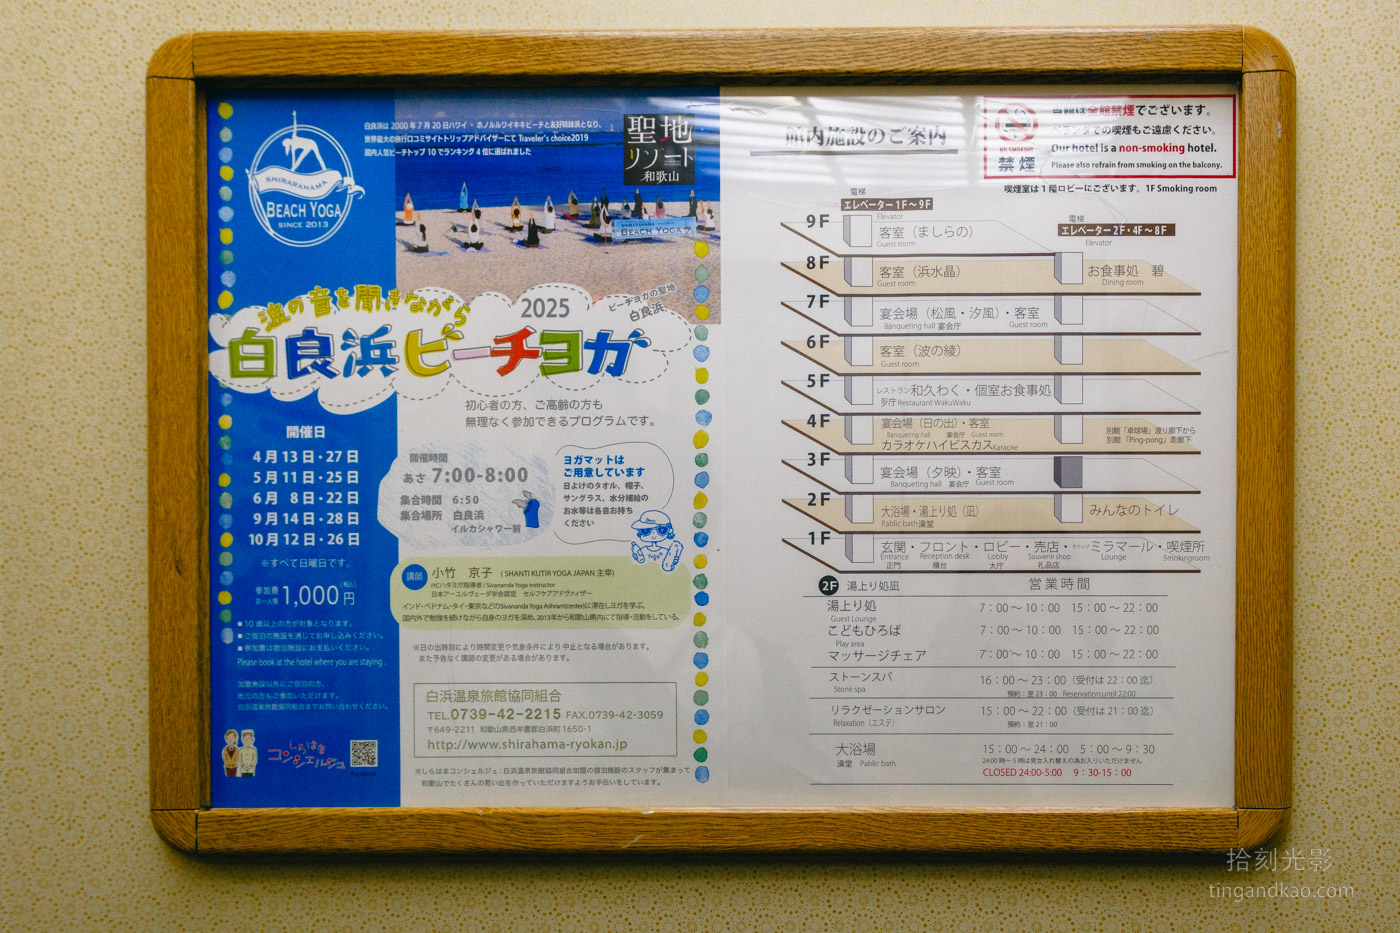 SHIRARAHAMA
BEACH YOGA
SINCE 2013
白良浜は 2000 年 7 月 20 日ハワイ・ホノルルワイキキビーチと友好姉妹浜となり、
世界最大の旅行口コミサイトトリップアドバイザーにて Traveler's choice2019
国内人気ビーチトップ 10 でランキング 4 位に選ばれました
聖地
リゾート
和歌山
BEACH YOGA
漣の音を聞きながら
2025
ビーチヨガの聖地
白良浜
白良浜ビーチヨガ
初心者の方、ご高齢の方も
無理なく参加できるプログラムです。
開催日
4 月 13 日・27 日
5 月 11 日・25 日
6 月 8 日・22 日
9 月 14 日・28 日
10 月 12 日・26 日
※すべて日曜日です。
参加費
お一人様
1,000 円
(税込)
■ 10 歳以上の方が対象となります。
■ ご宿泊の施設を通じてお申し込みください。
■ 参加費は宿泊施設にお支払いください。
Please book at the hotel where you are staying.
加盟施設以外にご宿泊の方、
地元の方もご参加いただけます。
白浜温泉旅館協同組合までお問い合わせください。
しらはま
コンシェルジュ
Facebook
開催時間
あさ 7:00-8:00
集合時間 6:50
集合場所 白良浜
イルカシャワー前
ヨガマットは
ご用意しています
日よけのタオル、帽子、
サングラス、水分補給の
お水等は各自お持ち
ください
講師
小竹 京子 ( SHANTI KUTIR YOGA JAPAN 主宰)
IYCハタヨガ指導者 / Sivananda Yoga instructor
日本アーユルヴェーダ学会認定 セルフケアアドヴァイザー
インド・ベトナム・タイ・東京などのSivananda Yoga Ashram(center)に滞在しヨガを学ぶ。
国内外で勉強を続けながら自身のヨガを深め、2013年から和歌山県内にて指導・活動をしている。
※日の出時刻により時間変更や気象条件により中止となる場合があります。
また予告なく講師の変更がある場合があります。
白浜温泉旅館協同組合
TEL.0739-42-2215 FAX.0739-42-3059
〒649-2211 和歌山県西牟婁郡白浜町 1650-1
http://www.shirahama-ryokan.jp
※しらはまコンシェルジュ：白浜温泉旅館協同組合加盟の宿泊施設のスタッフが集まって
和歌山でたくさんの思い出を作っていただけますようお手伝いをしています。
館内施設のご案内
NO SMOKING
禁煙
当館は全館禁煙でございます。
ベランダでの喫煙もご遠慮ください。
Our hotel is a non-smoking hotel.
Please also refrain from smoking on the balcony.
喫煙室は 1 階ロビーにございます。1F Smoking room
電梯
エレベーター 1F～9F
Elevator
電梯
エレベーター 2F・4F～8F
Elevator
9F
客室（ましらの）
Guest room
8F
客室（浜水晶）
Guest room
お食事処 碧
Dining room
7F
宴会場（松風・汐風）・客室
Banqueting hall 宴会庁 Guest room
6F
客室（波の綾）
Guest room
5F
レストラン和久わく・個室お食事処
歺庁 Restaurant WakuWaku
4F
宴会場（日の出）・客室
Banqueting hall 宴会庁 Guest room
カラオケハイビスカス Karaoke
別館「卓球場」渡り廊下から
別館「Ping-pong」走廊下
3F
宴会場（夕映）・客室
Banqueting hall 宴会庁 Guest room
2F
大浴場・湯上り処（凪）
Pablic bath 澡堂
みんなのトイレ
1F
玄関・フロント・ロビー・売店・ラウンジ ミラマール・喫煙所
Entrance Reception desk Lobby Souvenir shop Lounge Smokingroom
正門 櫃台 大庁 礼品店
2F 湯上り処凪
営業時間
湯上り処 7：00 ～ 10：00 15：00 ～ 22：00
Guest Lounge
こどもひろば 7：00 ～ 10：00 15：00 ～ 22：00
Play area
マッサージチェア 7：00 ～ 10：00 15：00 ～ 22：00
ストーンスパ 16：00 ～ 23：00（受付は 22：00 迄）
Stone spa 預約：至 23：00 Reservation:until 22:00
リラクゼーションサロン 15：00 ～ 22：00（受付は 21：00 迄）
Relaxation（エステ） 預約：至 21：00
大浴場 15：00 ～ 24：00 5：00 ～ 9：30
澡堂 Pablic bath 24:00 時～ 5 時は男女入れ替えの為お入りいただけません
CLOSED 24:00-5:00 9：30-15：00
拾刻光影
tingandkao.com